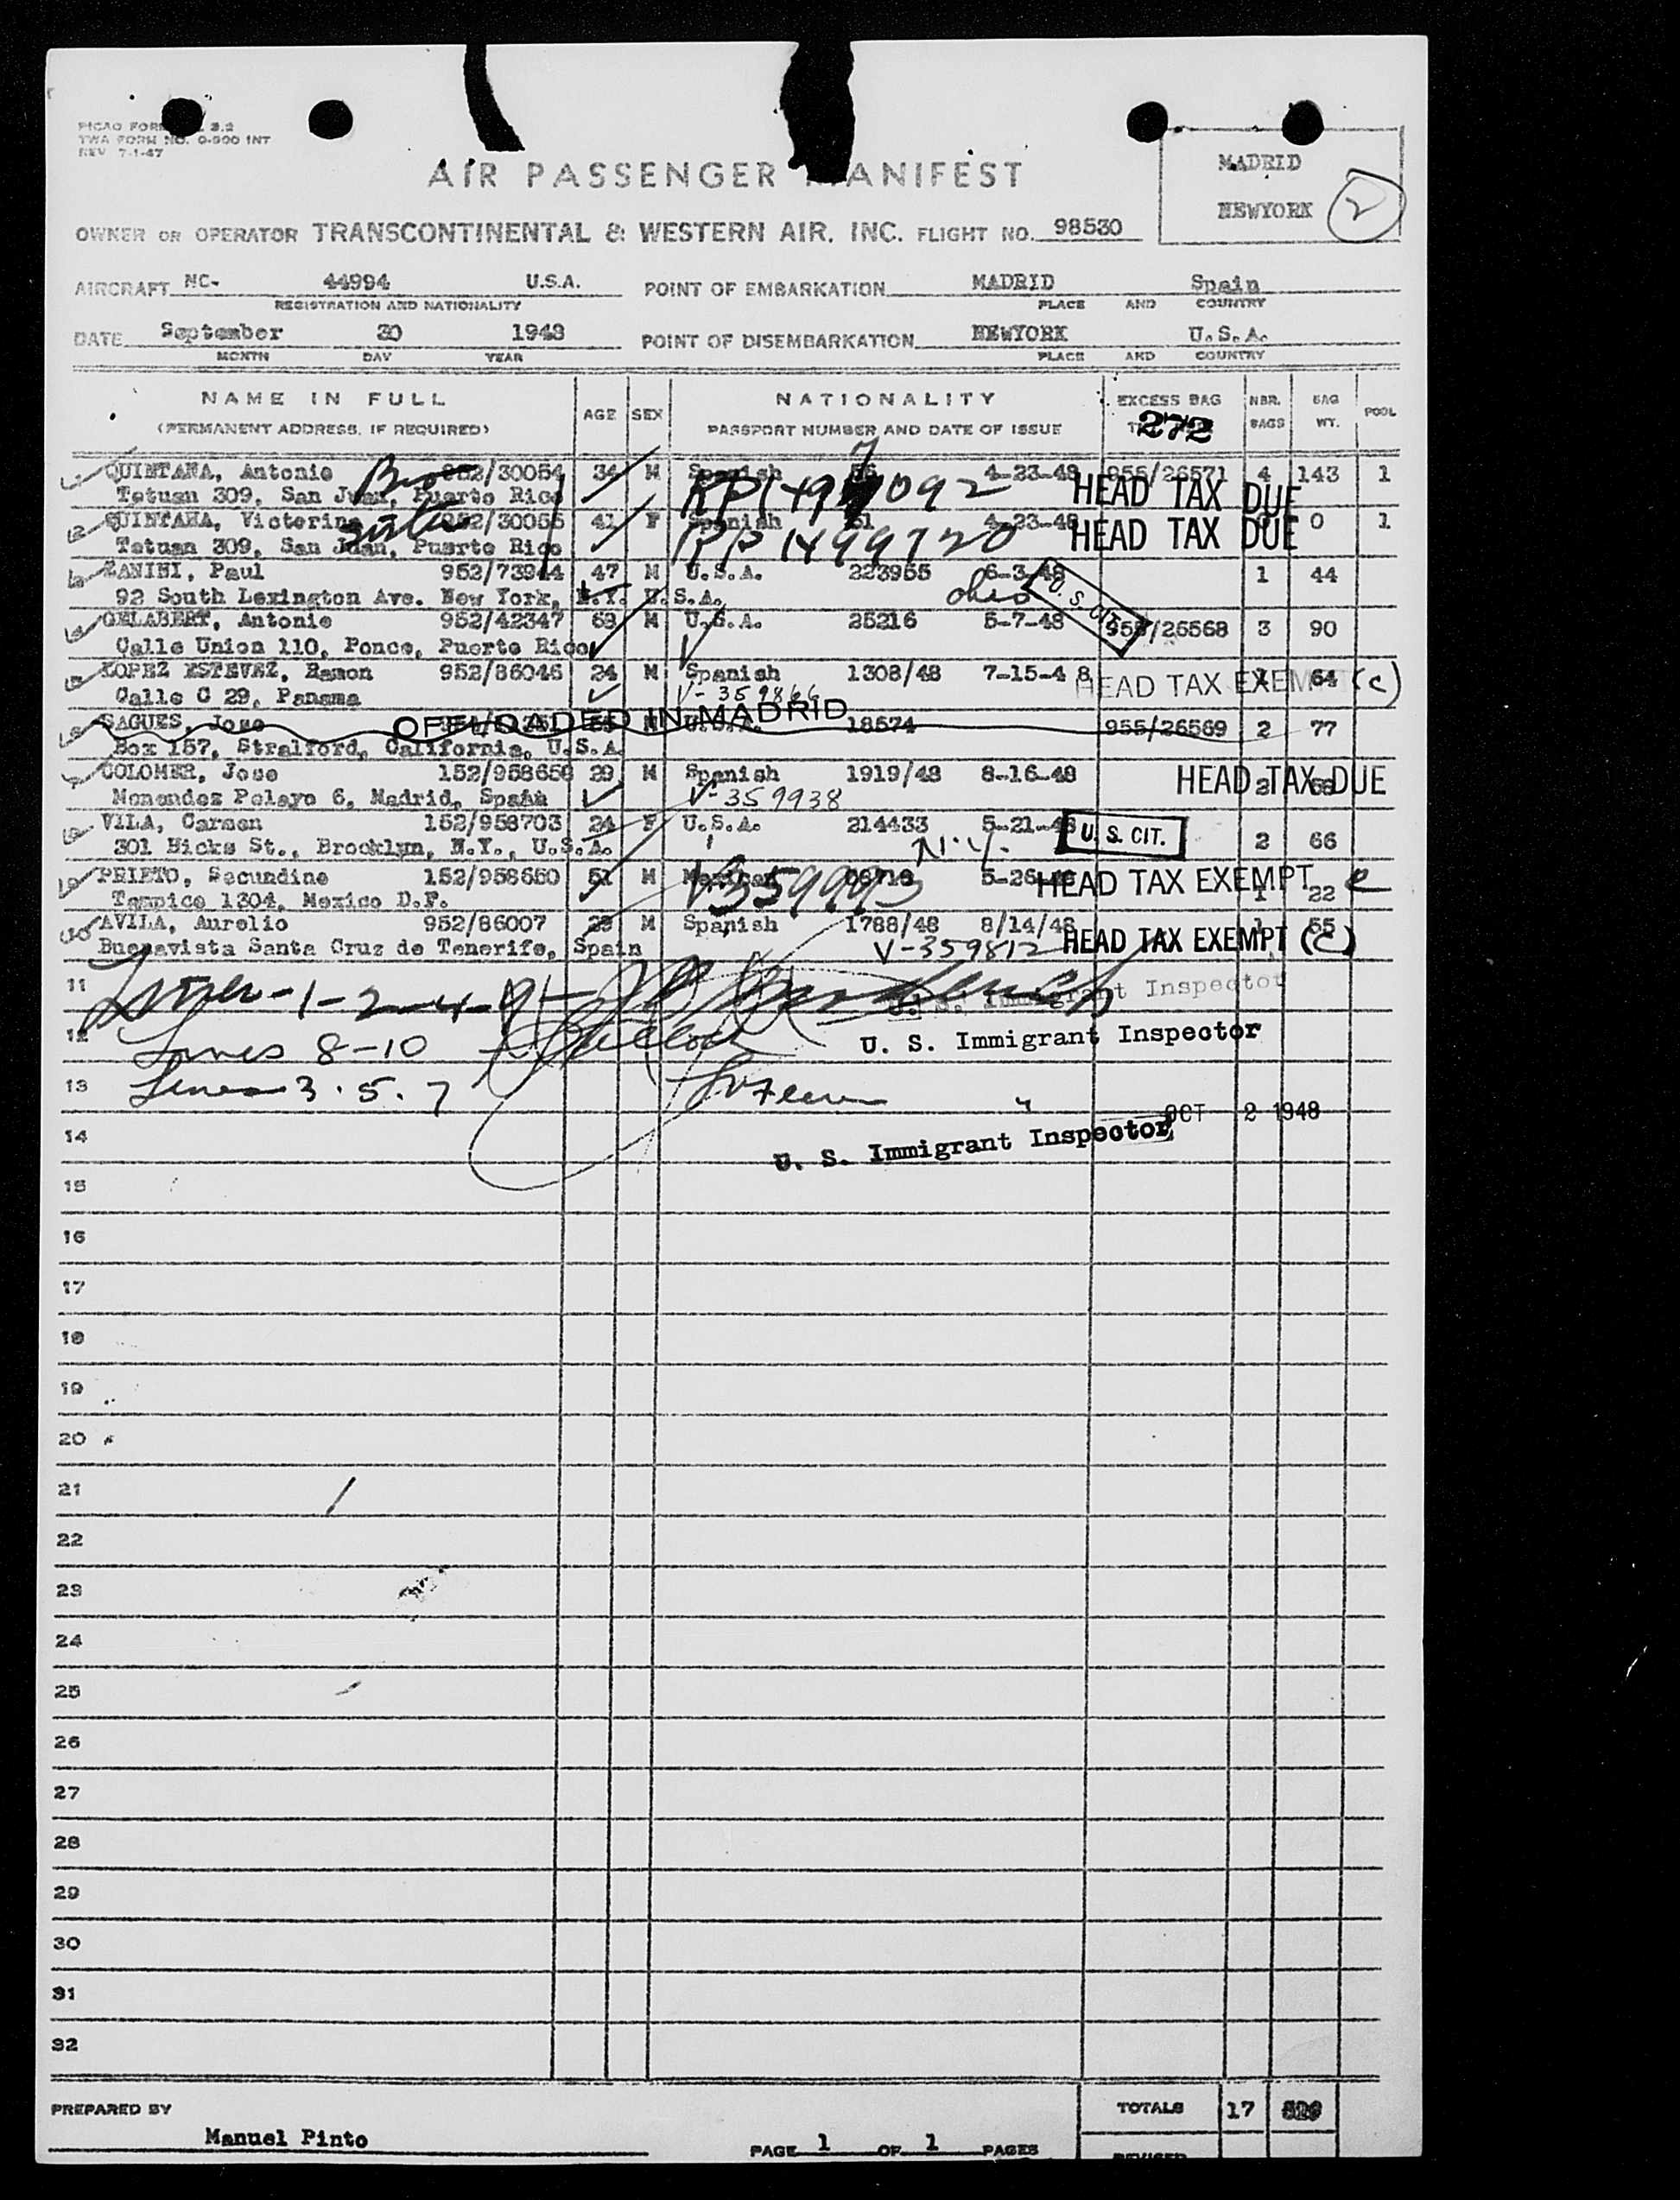 PICAO FORM 3.2
TWA FORM NO. O-900 INT
REV 7-1-47
AIR PASSENGER MANIFEST
MADRID
NEWYORK
2
OWNER OR OPERATOR TRANSCONTINENTAL & WESTERN AIR, INC. FLIGHT NO. 98530
AIRCRAFT NC- 44994 U.S.A. POINT OF EMBARKATION MADRID Spain
REGISTRATION AND NATIONALITY PLACE AND COUNTRY
DATE September 30 1948 POINT OF DISEMBARKATION NEWYORK U.S.A.
MONTH DAY YEAR PLACE AND COUNTRY
NAME IN FULL AGE SEX NATIONALITY EXCESS BAG NBR. BAGS BAG WT. POOL
(PERMANENT ADDRESS, IF REQUIRED) PASSPORT NUMBER AND DATE OF ISSUE 272
QUINTANA, Antonio 952/30054 34 M Spanish 4-23-48 955/26571 4 143 1
Tetuan 309, San Juan, Puerto Rico HEAD TAX DUE
QUINTANA, Victorina 952/30055 41 F Spanish 51 4-23-48 0 1
Tetuan 309, San Juan, Puerto Rico RP 1499720 HEAD TAX DUE
ZANINI, Paul 952/73944 47 M U.S.A. 223955 6-3-48 1 44
92 South Lexington Ave. New York, N.Y. U.S.A. Ohio U. S. CIT.
GELABERT, Antonio 952/42347 63 M U.S.A. 25216 5-7-48 955/26568 3 90
Calle Union 110, Ponce, Puerto Rico
LOPEZ ESTEVEZ, Ramon 952/86046 24 M Spanish 1308/48 7-15-4 8 1 64
Calle C 29, Panama V-359866 HEAD TAX EXEMPT (C)
SAGUES, Jose OFFLOADED IN MADRID M U.S.A. 18574 955/26569 2 77
Box 157, Stralford, California, U.S.A.
COLOMER, Jose 152/958656 29 M Spanish 1919/48 8-16-48 HEAD TAX DUE 2
Menendez Pelayo 6, Madrid, Spain V-359938
VILA, Carmen 152/958703 24 F U.S.A. 214433 5-21-48 U. S. CIT. 2 66
301 Hicks St., Brooklyn, N.Y., U.S.A. N.Y.
PRIETO, Secundino 152/958660 51 M Mexican 5-26-48 HEAD TAX EXEMPT 1 22 C
Tampico 1304, Mexico D.F. V359993
AVILA, Aurelio 952/86007 29 M Spanish 1788/48 8/14/48 1 55
Buenavista Santa Cruz de Tenerife, Spain V-359812 HEAD TAX EXEMPT (C)
11 Lines-1-2-4-9- U. S. Immigrant Inspector
12 Lines 8-10 U. S. Immigrant Inspector
13 Lines 3.5.7 "
OCT 2 1948
14 U. S. Immigrant Inspector
15
16
17
18
19
20
21
22
23
24
25
26
27
28
29
30
31
32
PREPARED BY Manuel Pinto PAGE 1 OF 1 PAGES TOTALS 17
REVISED